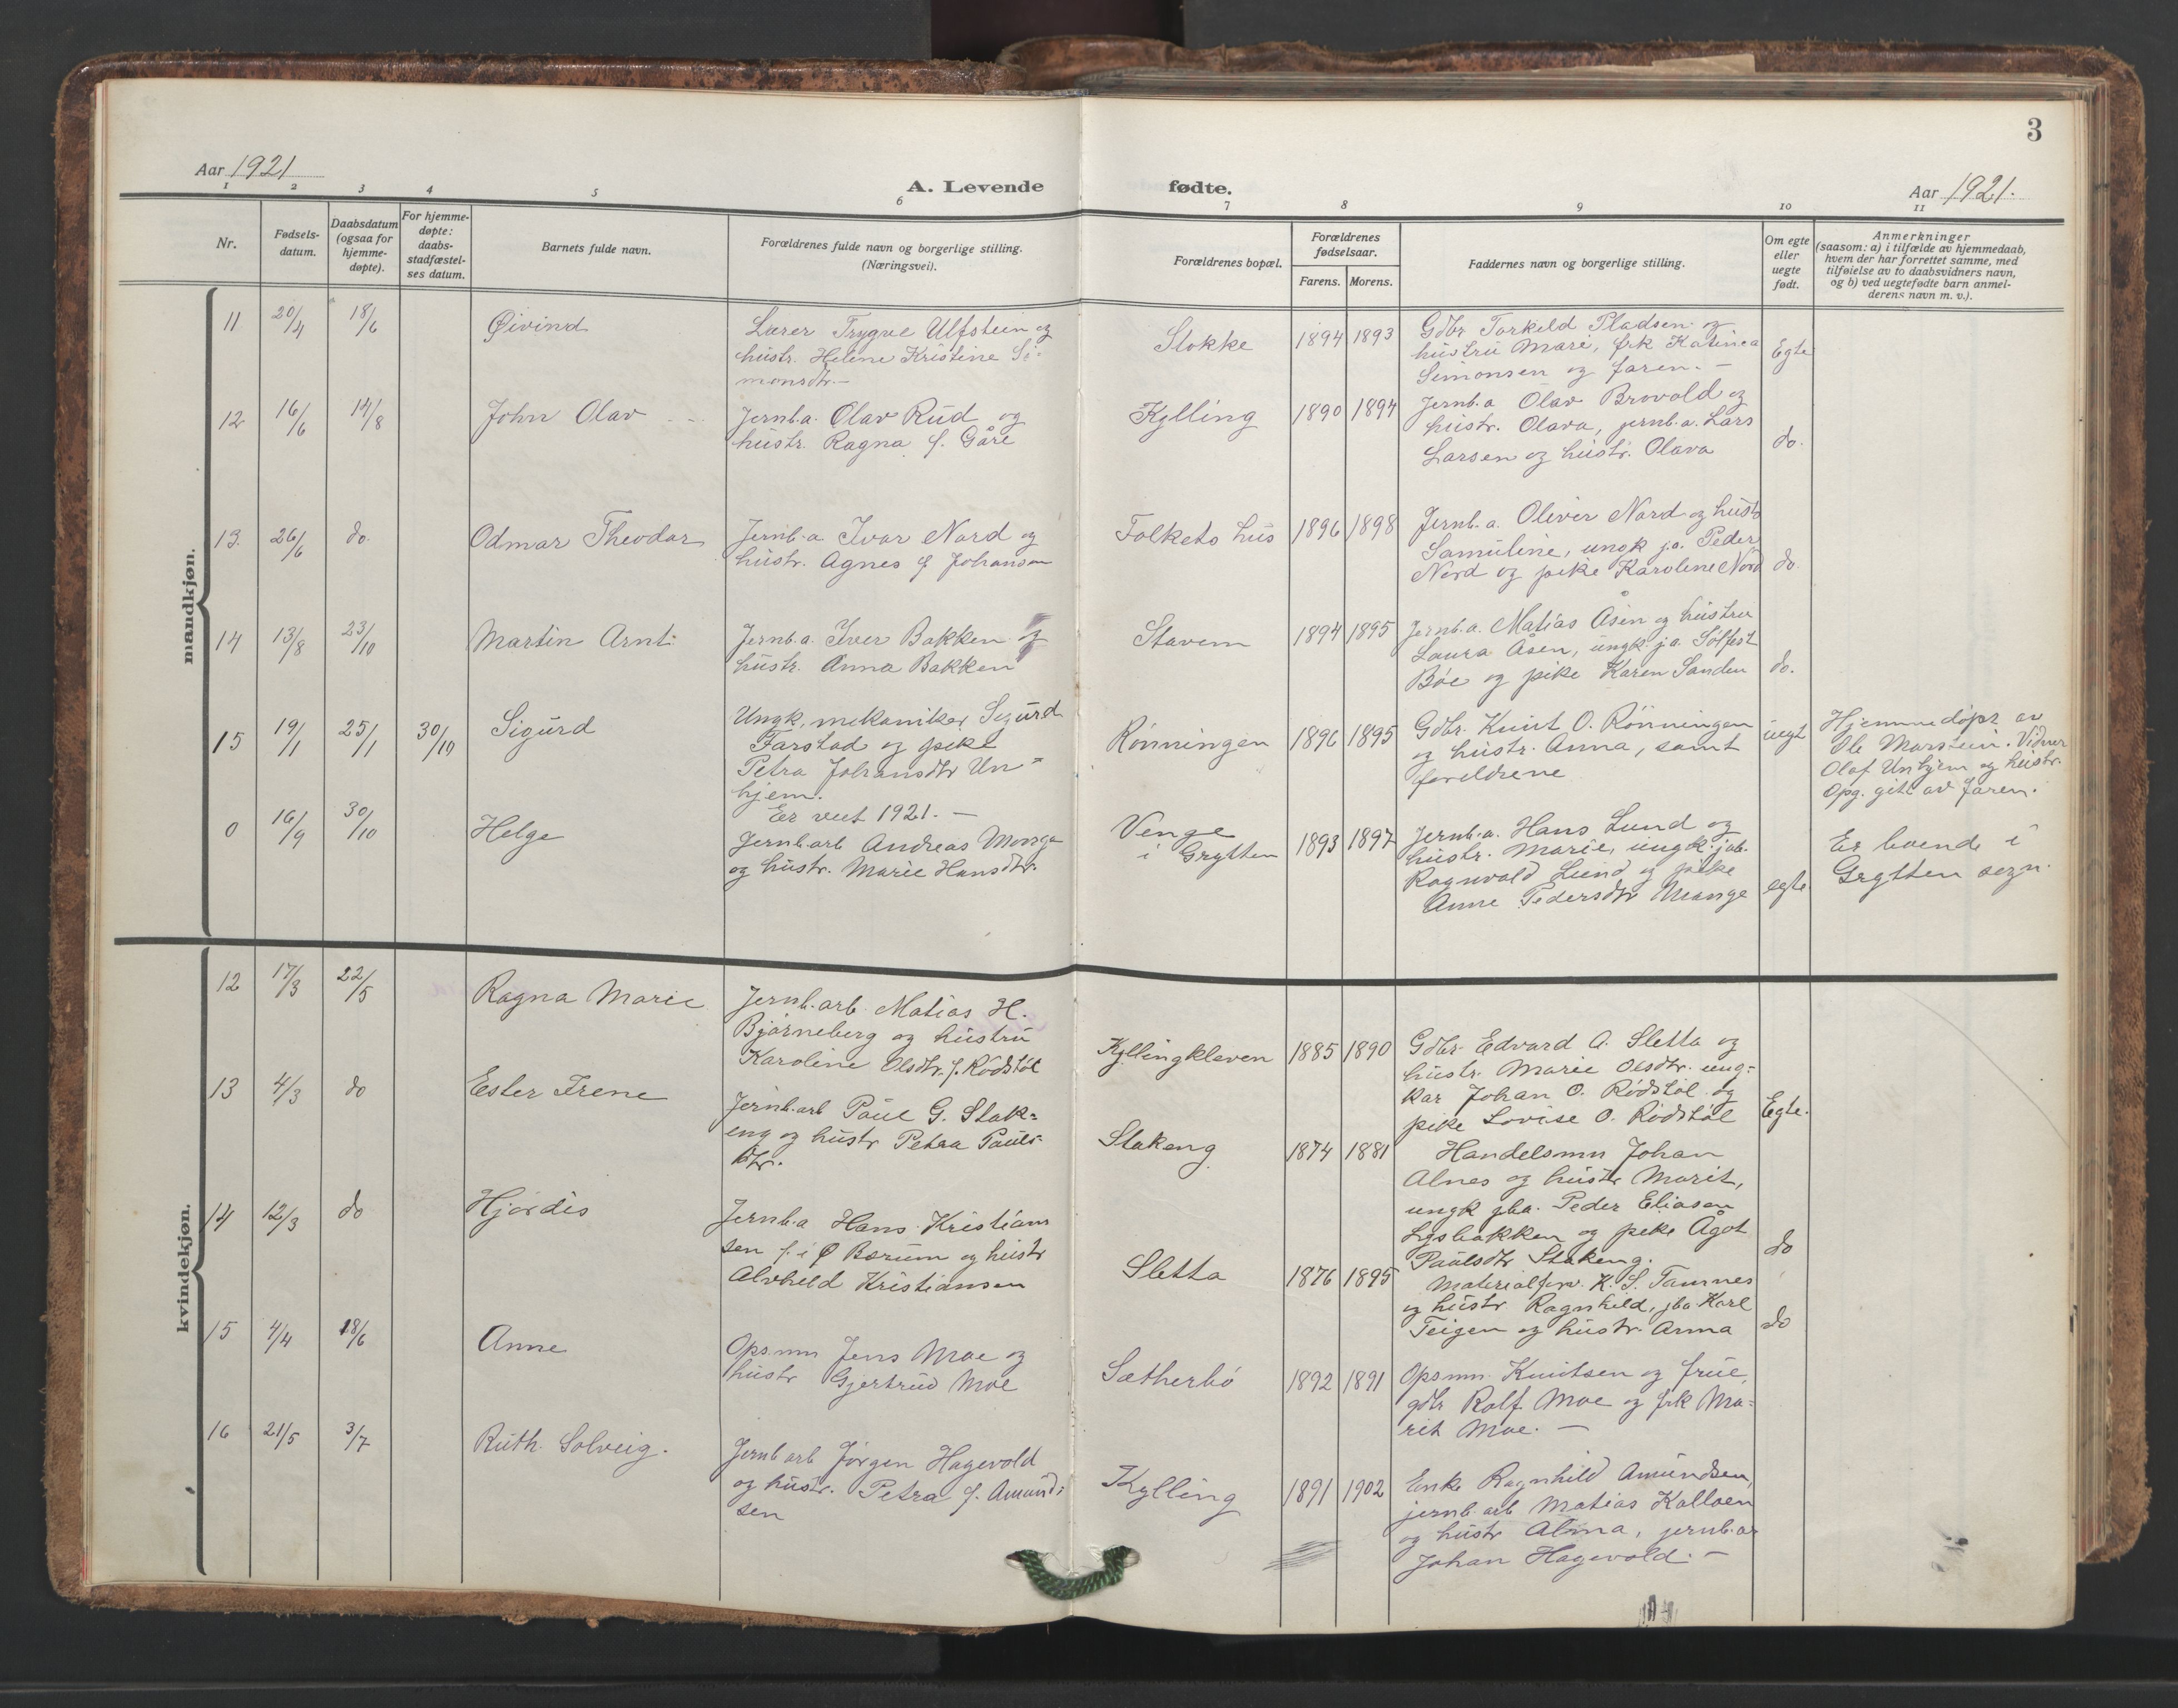 3
Aar 1921
A. Levende fødte.
Aar 1921.
1 2 3 4 5 6 7 8 9 10 11
Nr.
Fødsels-
datum.
Daabsdatum
(ogsaa for
hjemme-
døpte).
For hjemme-
døpte:
daabs-
stadfæstel-
ses datum.
Barnets fulde navn.
Forældrenes fulde navn og borgerlige stilling.
(Næringsvei).
Forældrenes bopæl.
Forældrenes
fødselsaar.
Farens. Morens.
Faddernes navn og borgerlige stilling.
Om egte
eller
uegte
født.
Anmerkninger
(saasom: a) i tilfælde av hjemmedaab,
hvem der har forrettet samme, med
tilføielse av to daabsvidners navn,
og b) ved uegtefødte barn anmel-
derens navn m. v.).
mandkjøn.
11 20/4 18/6 Øivind
Lærer Trygve Ulfstein og
hustr. Helene Kristine Si=
monsdtr.-
Stokke 1894 1893
Gdbr Torkeld Pladsen og
hustru Mari, frk Katinca
Simonsen og faren. -
Egte
12 16/6 14/8 John Olav
Jernb.a. Olav Rud og
hustr. Ragna f. Gåre
Kylling 1890 1894
Jernb.a Olav Brovold og
hustr. Olava, jernb.a. Lars
Larsen og hustr. Olava
do.
13. 26/6 do. Odmar Theodor
Jernb.a. Ivar Nord og
hustr. Agnes f Johansen
Folkets hus 1896 1898
Jernb.a. Oliver Nord og hustr
Samuline, ungk j.a. Peder
Nord og pike Karoline Nord
do.
14 13/8 23/10 Martin Arnt
Jernb.a. Iver Bakken og
hustr. Anna Bakken
Stavem 1894 1895
Jernb.a. Matias Åsen og hustru
Laura Åsen, ungk. j.a. Solfest
Bøe og pike Karen Sanden
do.
15 19/1 25/1 30/10 Sigurd
Ungk, mekaniker Sigurd
Farstad og pike
Petra Johansdtr Un=
hjem.
Er veet 1921. -
Rønningen 1896 1895
Gdbr. Knut O. Rønningen
og hustr. Anna, samt
foreldrene
uegt
Hjemmedøpt av
Ole Marstein. Vidner
Olaf Unhjem og hustr.
Opg. git av faren.
0 16/9 30/10 Helge
Jernb.arb Andreas Monge
og hustr. Marie Hansdtr.
Venge
i Grytten 1893 1897
Jernb.a. Hans Lund og
hustr. Marie, ungk. jab.
Ragnvald Lund og pike
Anne Pedersdtr Monge
egte
Er boende i
Grytten sogn.
kvindekjøn.
12 17/3 22/5 Ragna Marie
Jernb.arb Matias H.
Bjørneberg og hustru
Karoline Olsdtr. f. Rødstøl
Kyllingkleven 1885 1890
Gdbr. Edvard A. Sletta og
hustr. Marie Olsdtr. ung=
kar Johan O. Rødstøl og
pike Lovise O. Rødstøl
Egte.
13 4/3 do Ester Irene
Jernb.arb Paul G. Stak=
eng og hustr Petra Pauls
dtr.
Stakeng 1874 1881
Handelsmn Johan
Alnes og hustr Marit,
ungk jba. Peder Eliasen
Lysbakken og pike Ågot
Paulsdtr Stakeng.
do
14 12/3 do Hjørdis
Jernb.a Hans Kristian
sen f. i Ø Bærum og hustr
Alvhild Kristiansen
Sletta 1876 1895
Materialforv. K. S. Tamnes
og hustr Ragnhild, jba Karl
Teigen og hustr. Anna
do
15 4/4 18/6 Anne
Opsmn Jens Moe og
hustr Gjertrud Moe
Sætherbø 1892 1891
Opsmn. Knutsen og frue,
gdbr Rolf Moe og frk Ma=
rit Moe. -
16 21/5 3/7 Ruth Solveig.
Jernb arb Jørgen Hagevold
og hustr. Petra f. Amund=
sen
Kylling 1891 1902
Enke Ragnhild Amundsen,
jernb.arb Matias Kolloen
og hustr Alma, jernb.ar
Johan Hagevold. -